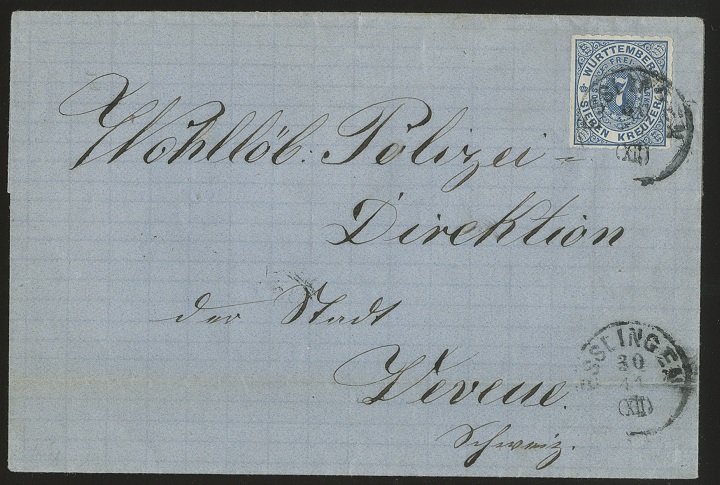 WÜRTTEMBERG
FREI
7
SIEBEN KREUZER
(XII)
Wohllöb. Polizei=
Direktion
der Stadt
Vevene.
Schweiz.
ESSLINGEN
30
11
(XII)